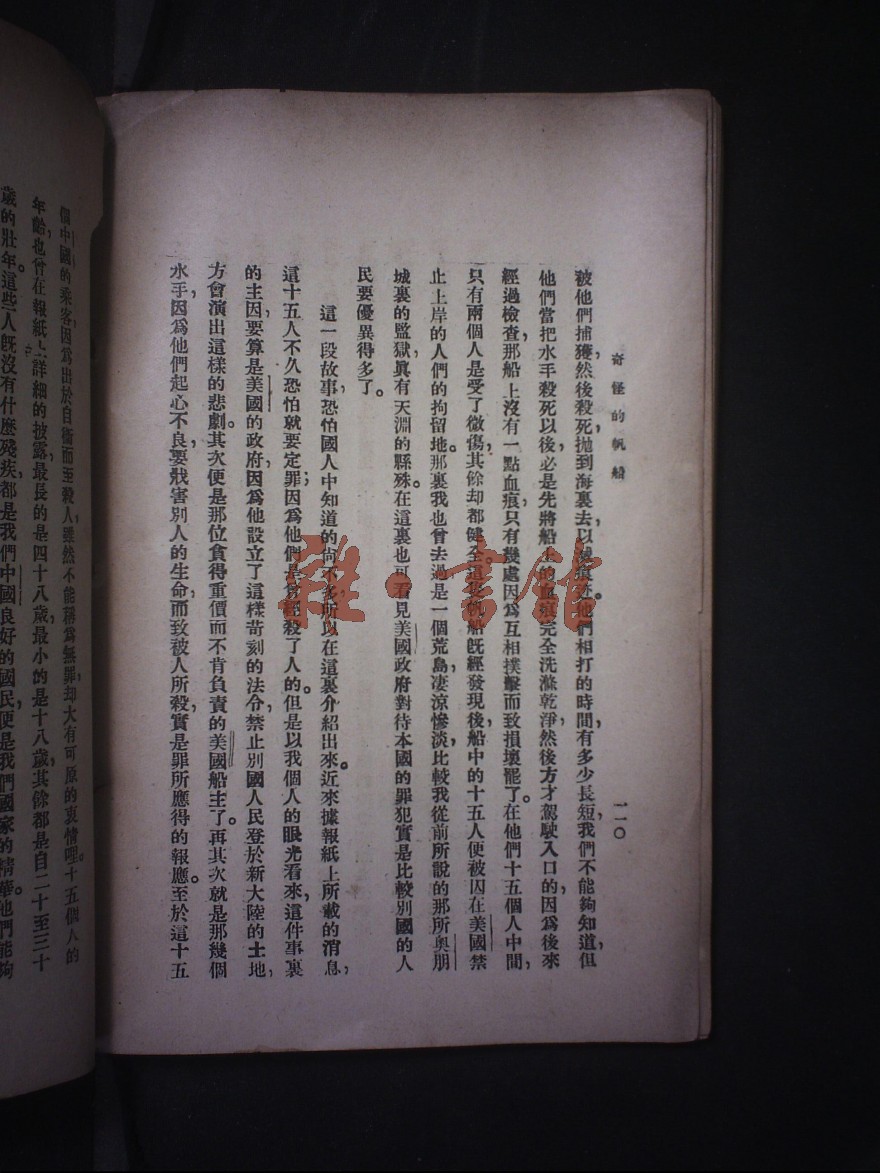 奇怪的帆船
一一〇
被他們捕獲然後殺死拋到海裏去以滅痕迹他們相打的時間有多少長短我們不能夠知道但
他們當把水手殺死以後必是先將船上的血痕完全洗滌乾淨然後方才駕駛入口的因爲後來
經過檢查那船上沒有一點血痕只有幾處因爲互相撲擊而致損壞罷了。在他們十五個人中間,
只有兩個人是受了微傷其餘却都健全。這隻帆船旣經發現後船中的十五人便被囚在美國禁
止上岸的人們的拘留地。那裏我也曾去過是一個荒島凄涼慘淡比較我從前所說的那所奧朋
城裏的監獄,眞有天淵的縣殊。在這裏也可看見美國政府對待本國的罪犯實是比較別國的人
民要優異得多了。
這一段故事,恐怕國人中知道的尚不多所以在這裏介紹出來。近來據報紙上所載的消息,
這十五人不久恐怕就要定罪;因爲他們是曾經殺了人的。但是以我個人的眼光看來,這件事裏
的主因要算是美國的政府,因爲他設立了這樣苛刻的法令,禁止別國人民登於新大陸的土地,
方會演出這樣的悲劇。其次便是那位貪得重價而不肯負責的美國船主了。再其次就是那幾個
水手,因爲他們起心不良,要戕害別人的生命,而致被人所殺,實是罪所應得的報應。至於這十五
個中國的乘客,因爲出於自衞而至殺人,雖然不能稱爲無罪,却大有可原的衷情哩。十五個人的
年齡,也曾在報紙上詳細的披露,最長的是四十八歲,最小的是十八歲,其餘都是自二十至三十
歲的壯年。這些人旣沒有什麽殘疾,都是我們中國良好的國民,便是我們國家的精華。他們能夠
雜·書館